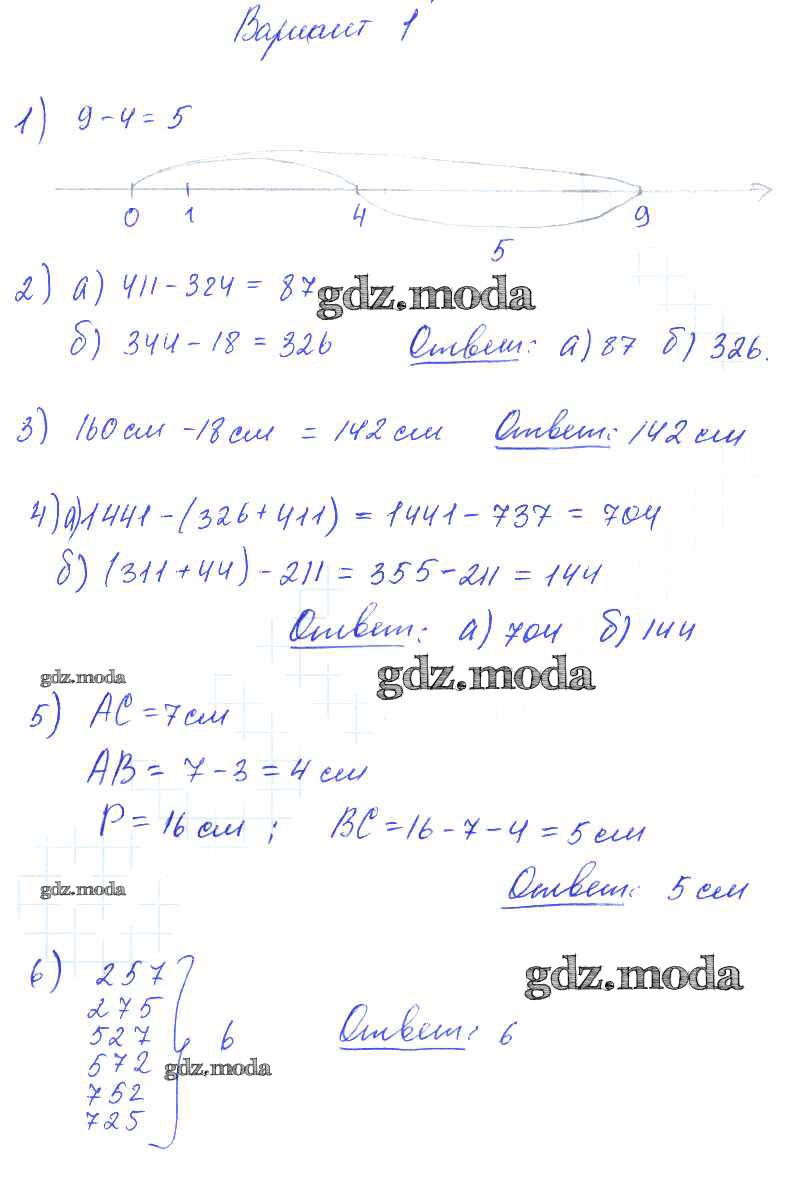 Вариант 1
1) 9 - 4 = 5
0 1 4 9
5
2) а) 411 - 324 = 87
gdz.moda
б) 344 - 18 = 326 Ответ: а) 87 б) 326.
3) 160 см - 18 см = 142 см Ответ: 142 см
4) а) 1441 - (326 + 411) = 1441 - 737 = 704
б) (311 + 44) - 211 = 355 - 211 = 144
Ответ: а) 704 б) 144
gdz.moda gdz.moda
5) AC = 7 см
AB = 7 - 3 = 4 см
P = 16 см ; BC = 16 - 7 - 4 = 5 см
gdz.moda Ответ: 5 см
6) 257 gdz.moda
275
527 6 Ответ: 6
572 gdz.moda
752
725